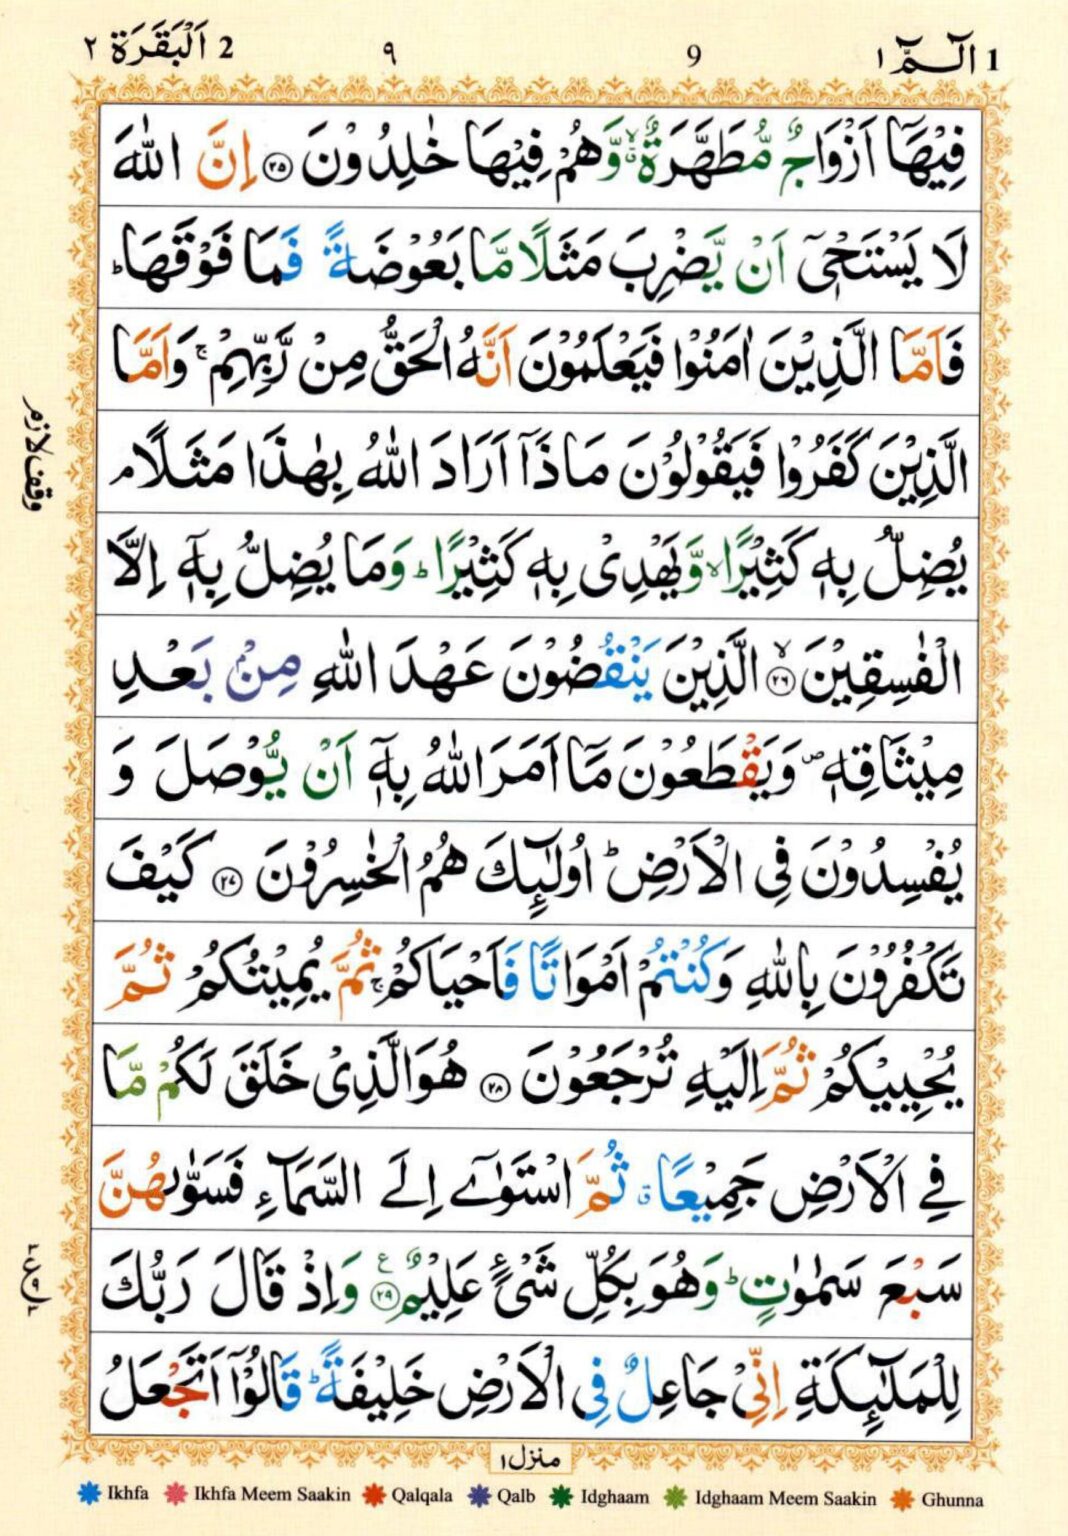 1 الٓمّٓ ١ 9 ٩ 2 اَلْبَقَرَة ٢
فِيْهَآ اَزْوَاجٌ مُّطَهَّرَةٌ ۙۗ وَّهُمْ فِيْهَا خٰلِدُوْنَ ﴿۲۵﴾ اِنَّ اللّٰهَ
لَا يَسْتَحْيٖٓ اَنْ يَّضْرِبَ مَثَلًا مَّا بَعُوْضَةً فَمَا فَوْقَهَا ؕ
فَاَمَّا الَّذِيْنَ اٰمَنُوْا فَيَعْلَمُوْنَ اَنَّهُ الْحَقُّ مِنْ رَّبِّهِمْ ۚ وَاَمَّا
الَّذِيْنَ كَفَرُوْا فَيَقُوْلُوْنَ مَاذَآ اَرَادَ اللّٰهُ بِهٰذَا مَثَلًا ۘ
وقف لازم
يُضِلُّ بِهٖ كَثِيْرًا ۙ وَّيَهْدِىْ بِهٖ كَثِيْرًا ؕ وَمَا يُضِلُّ بِهٖٓ اِلَّا
الْفٰسِقِيْنَ ۙ﴿۲۶﴾ الَّذِيْنَ يَنْقُضُوْنَ عَهْدَ اللّٰهِ مِنْۢ بَعْدِ
مِيْثَاقِهٖ ۪ وَيَقْطَعُوْنَ مَآ اَمَرَ اللّٰهُ بِهٖٓ اَنْ يُّوْصَلَ وَ
يُفْسِدُوْنَ فِى الْاَرْضِ ؕ اُولٰٓئِكَ هُمُ الْخٰسِرُوْنَ ﴿۲۷﴾ كَيْفَ
تَكْفُرُوْنَ بِاللّٰهِ وَكُنْتُمْ اَمْوَاتًا فَاَحْيَاكُمْ ۚ ثُمَّ يُمِيْتُكُمْ ثُمَّ
يُحْيِيْكُمْ ثُمَّ اِلَيْهِ تُرْجَعُوْنَ ﴿۲۸﴾ هُوَ الَّذِىْ خَلَقَ لَكُمْ مَّا
فِى الْاَرْضِ جَمِيْعًا ۗ ثُمَّ اسْتَوٰٓى اِلَى السَّمَآءِ فَسَوّٰىهُنَّ
سَبْعَ سَمٰوٰتٍ ؕ وَهُوَ بِكُلِّ شَىْءٍ عَلِيْمٌ ﴿۲۹﴾ وَاِذْ قَالَ رَبُّكَ
لِلْمَلٰٓئِكَةِ اِنِّىْ جَاعِلٌ فِى الْاَرْضِ خَلِيْفَةً ؕ قَالُوْٓا اَتَجْعَلُ
منزل ١
Ikhfa Ikhfa Meem Saakin Qalqala Qalb Idghaam Idghaam Meem Saakin Ghunna